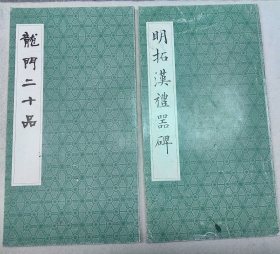 龍門二十品
明拓漢禮器碑